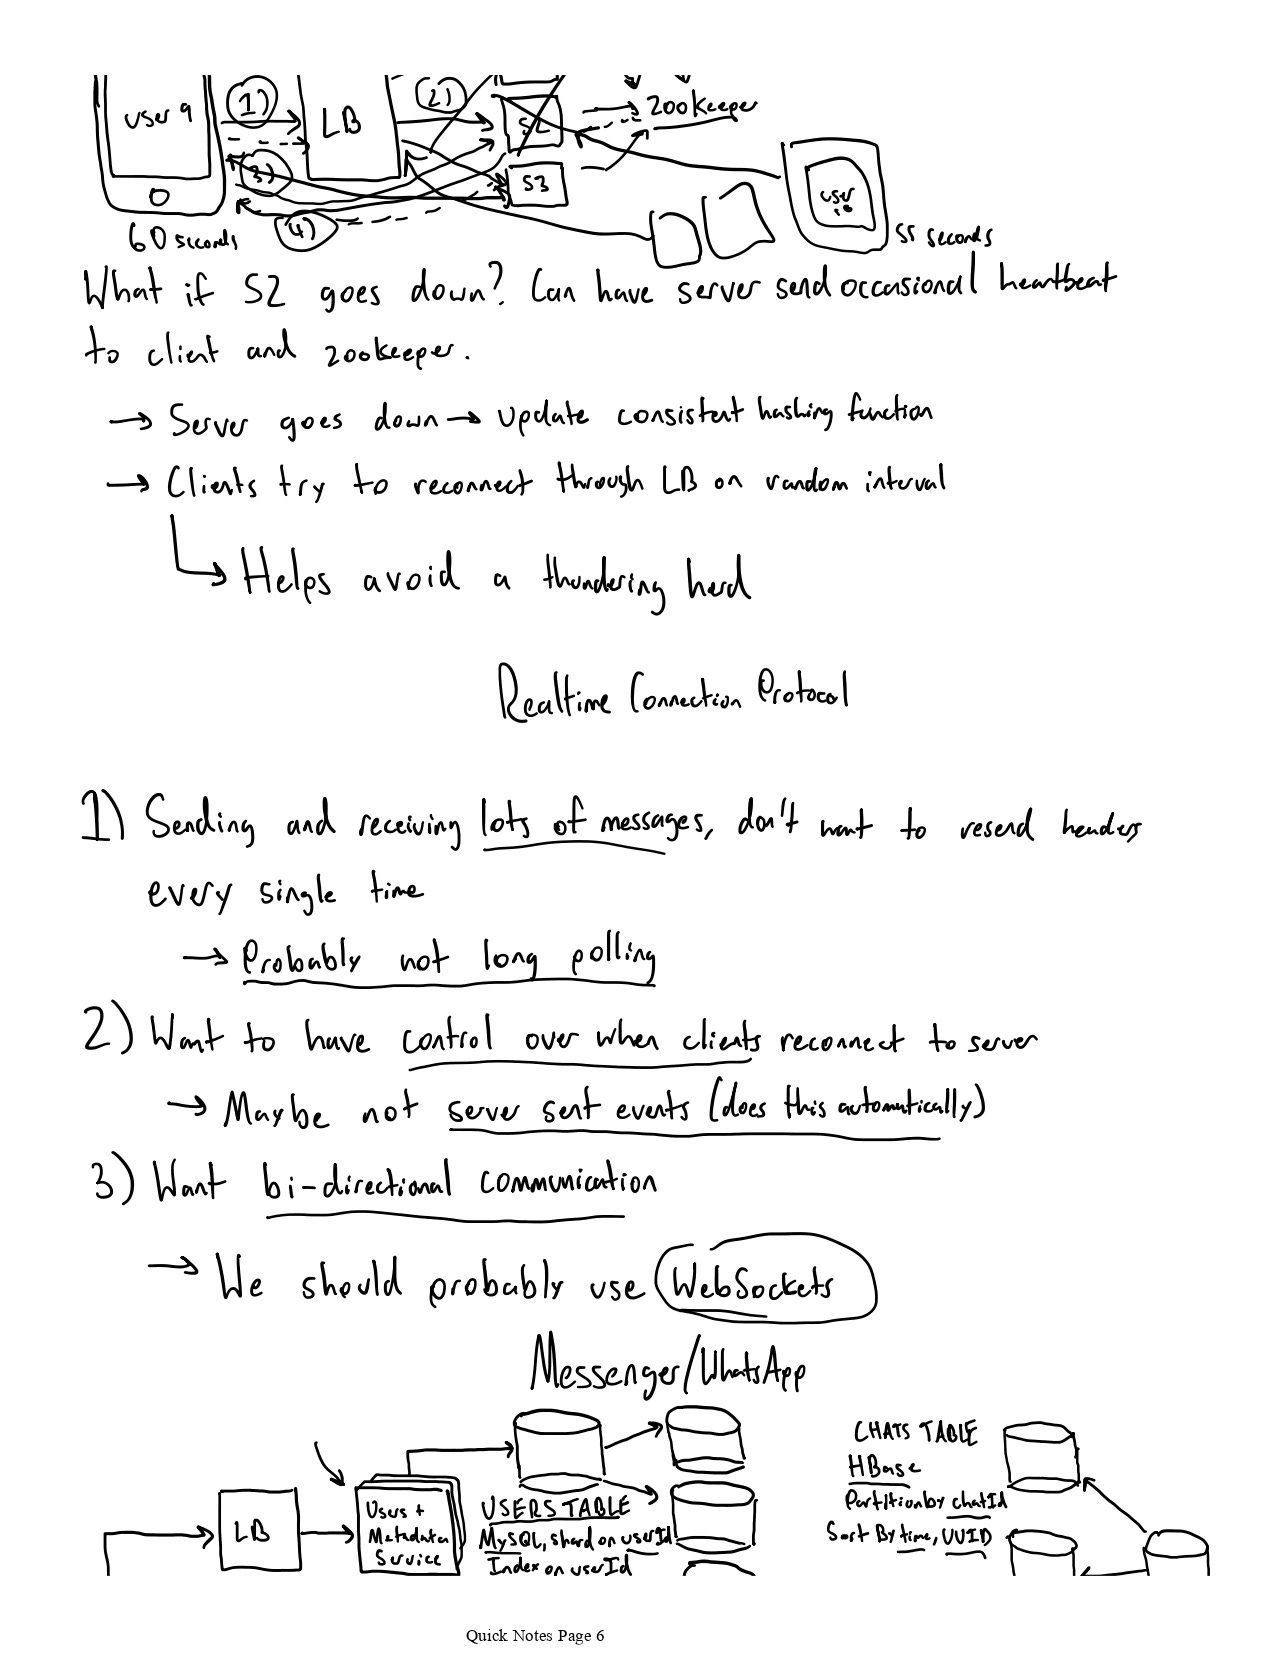 user 9
1)
LB
2)
S2
zookeeper
3)
S3
user
4)
60 seconds
55 seconds
What if S2 goes down? Can have server send occasional heartbeat
to client and zookeeper.
→ Server goes down → update consistent hashing function
→ Clients try to reconnect through LB on random interval
Helps avoid a thundering herd
Realtime Connection Protocol
1) Sending and receiving lots of messages, don't want to resend headers
every single time
→ Probably not long polling
2) Want to have control over when clients reconnect to server
→ Maybe not server sent events (does this automatically)
3) Want bi-directional communication
→ We should probably use WebSockets
Messenger/WhatsApp
LB
Users +
Metadata
Service
USERS TABLE
MySQL, shard on userId
Index on userId
CHATS TABLE
HBase
Partition by chatId
Sort By time, UUID
Quick Notes Page 6